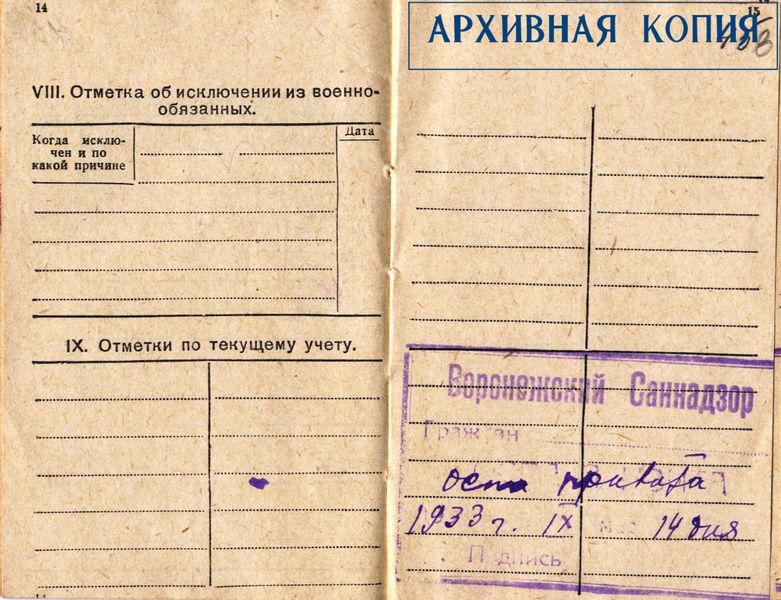 14
VIII. Отметка об исключении из военно-
обязанных.
Когда исклю-
чен и по
какой причине
Дата
IX. Отметки по текущему учету.
15
АРХИВНАЯ КОПИЯ
Воронежский Саннадзор
Граждан
оспа привита
1933 г. IX мес 14 дня
Подпись